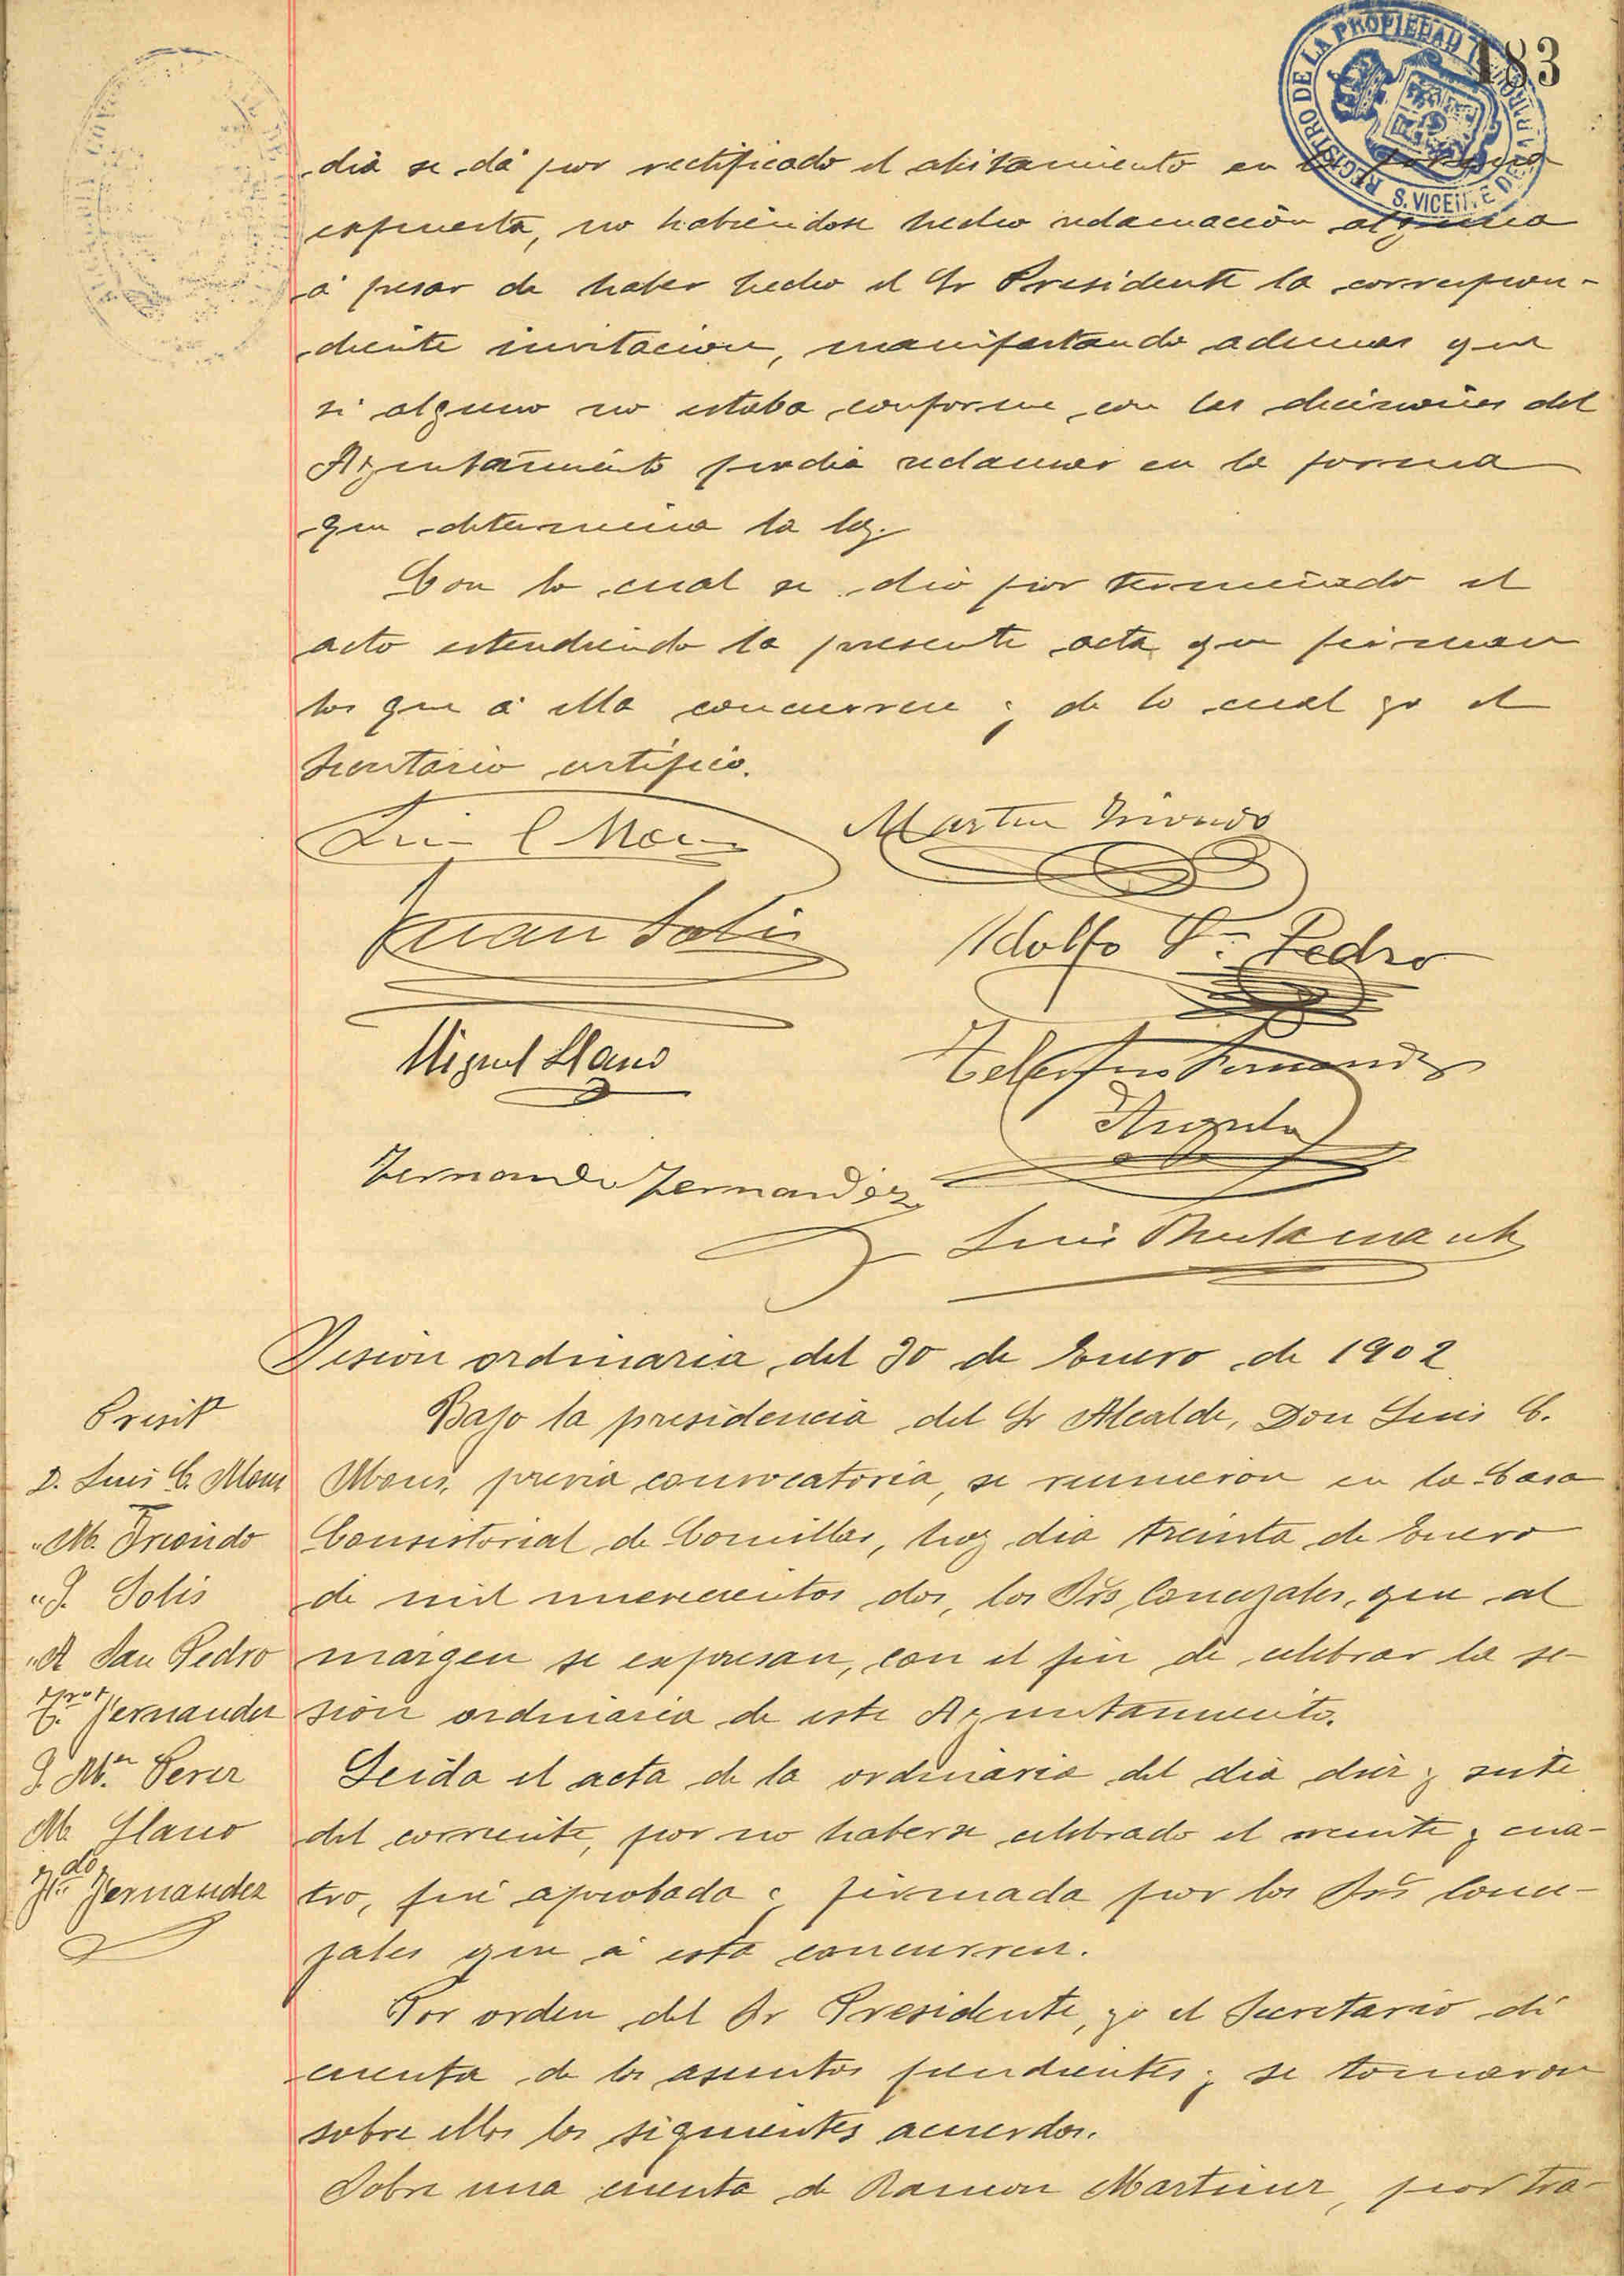 183
REGISTRO DE LA PROPIEDAD
S. VICENTE DE LA BARQUERA
dia se dá por rectificado el alistamiento en la forma
expuesta, no habiendose hecho reclamación alguna
á pesar de haber hecho el Sr Presidente la correspon-
diente invitacion, manifestando ademas que
si alguno no estaba conforme con las decisiones del
Ayuntamiento podia reclamar en la forma
que determina la ley.
Con lo cual se dió por terminado el
acto estendiendo la presente acta que firman
los que á ella concurren y de lo cual yo el
Secretario certifico.
Luis C Mons
Martin Iriondo
Juan Solis
Adolfo Sn Pedro
Miguel Llano
Celestino Fernandez
Angulo
Fernando Fernandez
Luis Bustamante
Sesion ordinaria del 30 de Enero de 1902
Presidte
D. Luis C. Mons
" M. Iriondo
" J. Solis
" A San Pedro
Fernandez
J. Ma Perez
M. Llano
Fdo Fernandez
Bajo la presidencia del Sr Alcalde, Don Luis C.
Mons, previa convocatoria, se reunieron en la Casa
Consistorial de Comillas, hoy dia treinta de Enero
de mil novecientos dos, los Srs Concejales, que al
margen se expresan, con el fin de celebrar la se-
sion ordinaria de este Ayuntamiento.
Leida el acta de la ordinaria del dia diez y siete
del corriente, por no haberse celebrado el veinte y cua-
tro, fué aprobada y firmada por los Srs Conce-
jales que á esta concurren.
Por orden del Sr Presidente, yo el Secretario dí
cuenta de los asuntos pendientes y se tomaron
sobre ellos los siguientes acuerdos.
Sobre una cuenta de Ramon Martinez, por tra-